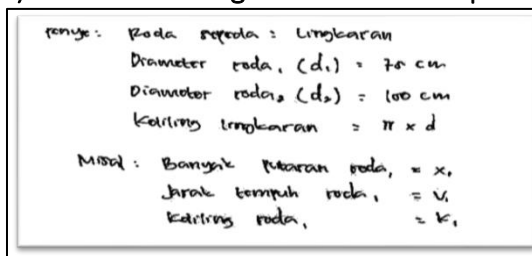 Penye: Roda sepeda = Lingkaran
Diameter roda₁ (d₁) = 70 cm
Diameter roda₂ (d₂) = 100 cm
Keliling lingkaran = π x d
Misal: Banyak putaran roda₁ = x₁
Jarak tempuh roda₁ = V₁
Keliling roda₁ = k₁